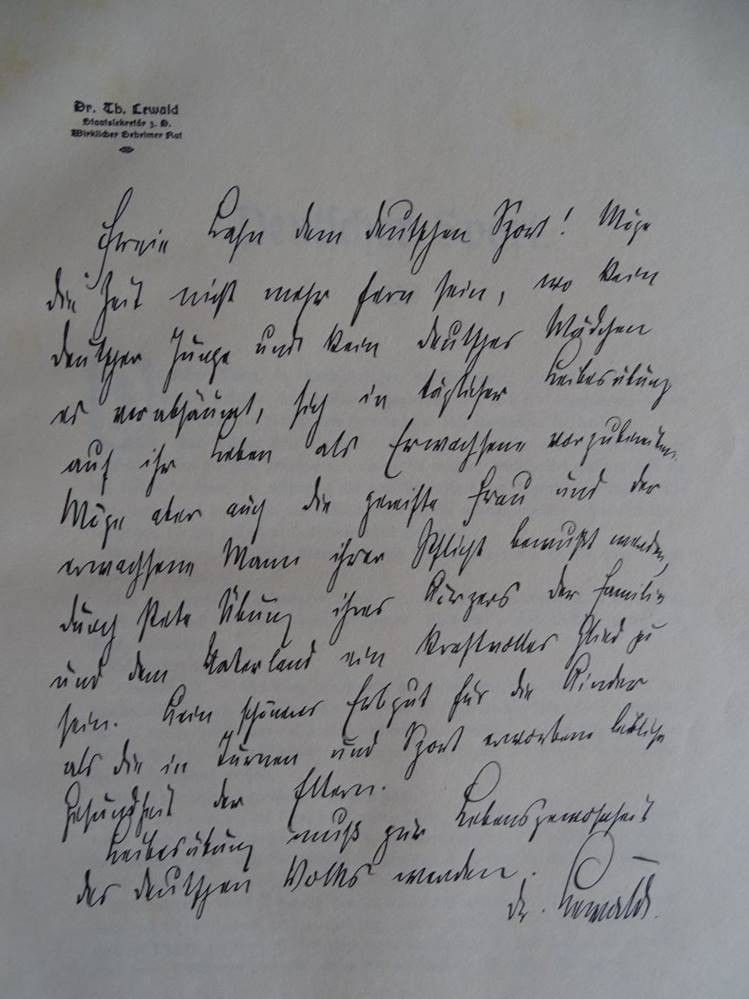 Dr. Th. Lewald
Staatssekretär z. D.
Wirklicher Geheimer Rat
Freie Bahn dem deutschen Sport! Möge
die Zeit nicht mehr fern sein, wo kein
deutscher Junge und kein deutsches Mädchen
es verabsäumt, sich in täglicher Leibesübung
auf ihr Leben als Erwachsene vorzubereiten.
Möge aber auch die gereifte Frau und der
erwachsene Mann ihrer Pflicht bewußt werden,
durch stete Übung ihres Körpers der Familie
und dem Vaterland ein kraftvolles Glied zu
sein. Kein schöneres Erbgut für die Kinder
als die in Turnen und Sport erworbene leibliche
Gesundheit der Eltern.
Leibesübung muß zur Lebensgewohnheit
des deutschen Volks werden.
Dr. Lewald.